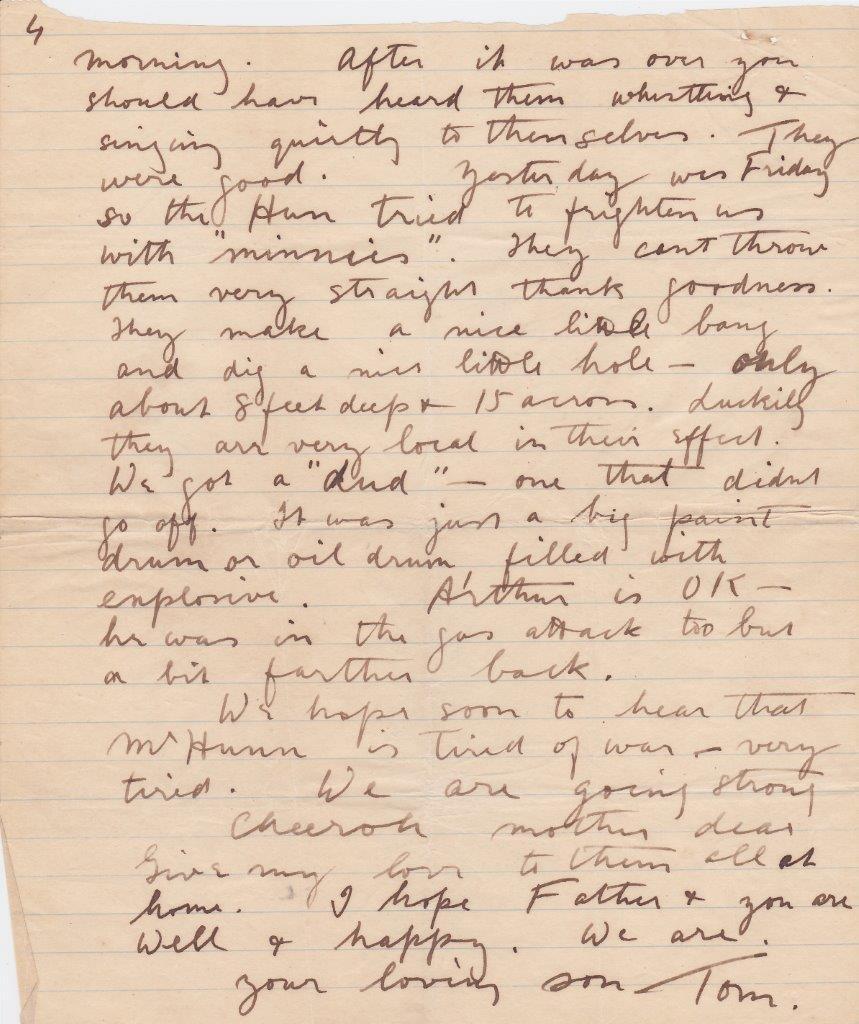 4
morning. After it was over you
should have heard them whistling &
singing quietly to themselves. They
were good. Yesterday was Friday
so the Hun tried to frighten us
with "minnies". They cant throw
them very straight thank goodness.
They make a nice little bang
and dig a nice little hole — only
about 8 feet deep & 15 across. Luckily
they are very local in their effect.
We got a "dud" — one that didnt
go off. It was just a big paint
drum or oil drum, filled with
explosive. Arthur is OK —
he was in the gas attack too but
a bit farther back.
We hope soon to hear that
Mr Hunn is tired of war — very
tired. We are going strong
Cheeroh mother dear
Give my love to them all at
home. I hope Father & you are
well & happy. We are.
your loving son — Tom.